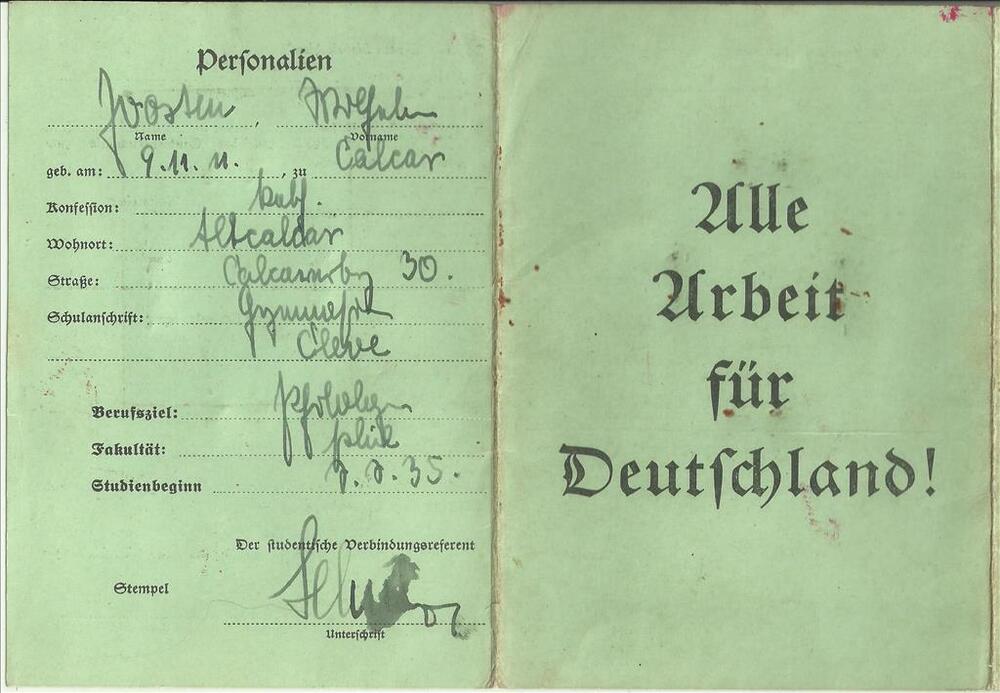 Personalien
Joosten, Wilhelm
Name Vorname
geb. am: 9.11.11., zu Calcar
Konfession: kath.
Wohnort: Altcalcar
Straße: 30.
Schulanschrift: Gymnasium
Cleve
Berufsziel:
Fakultät: phil
Studienbeginn 35.
Der studentische Verbindungsreferent
Stempel
Unterschrift
Alle
Arbeit
für
Deutschland!